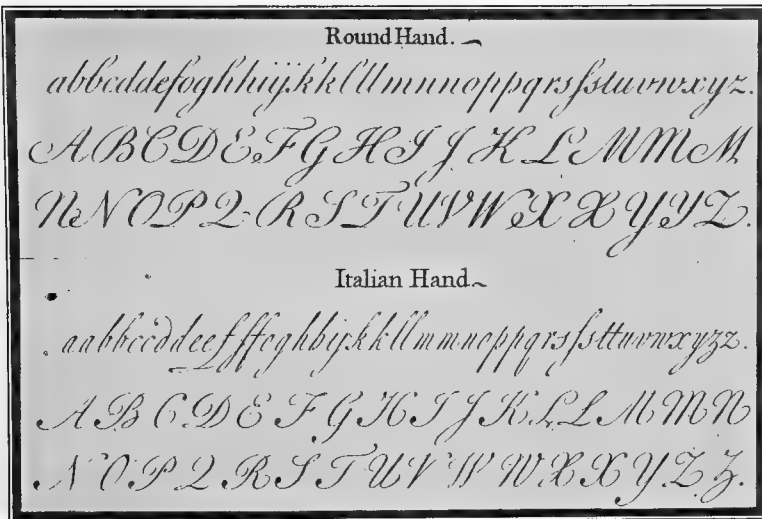 Round Hand.
abbcddefoghhiijkkllllmnnoppqrsſstuvwxyz.
ABCDEFGHIJKLMMM
NNOPQRSTUVWXXYYZ.
Italian Hand
aabbccddeefffoghhijkkllmmnoppqrsſsttuvwxyzz.
ABCDEFGHIJKLLMMN
NOPQRSTUVWWXXYZZ.